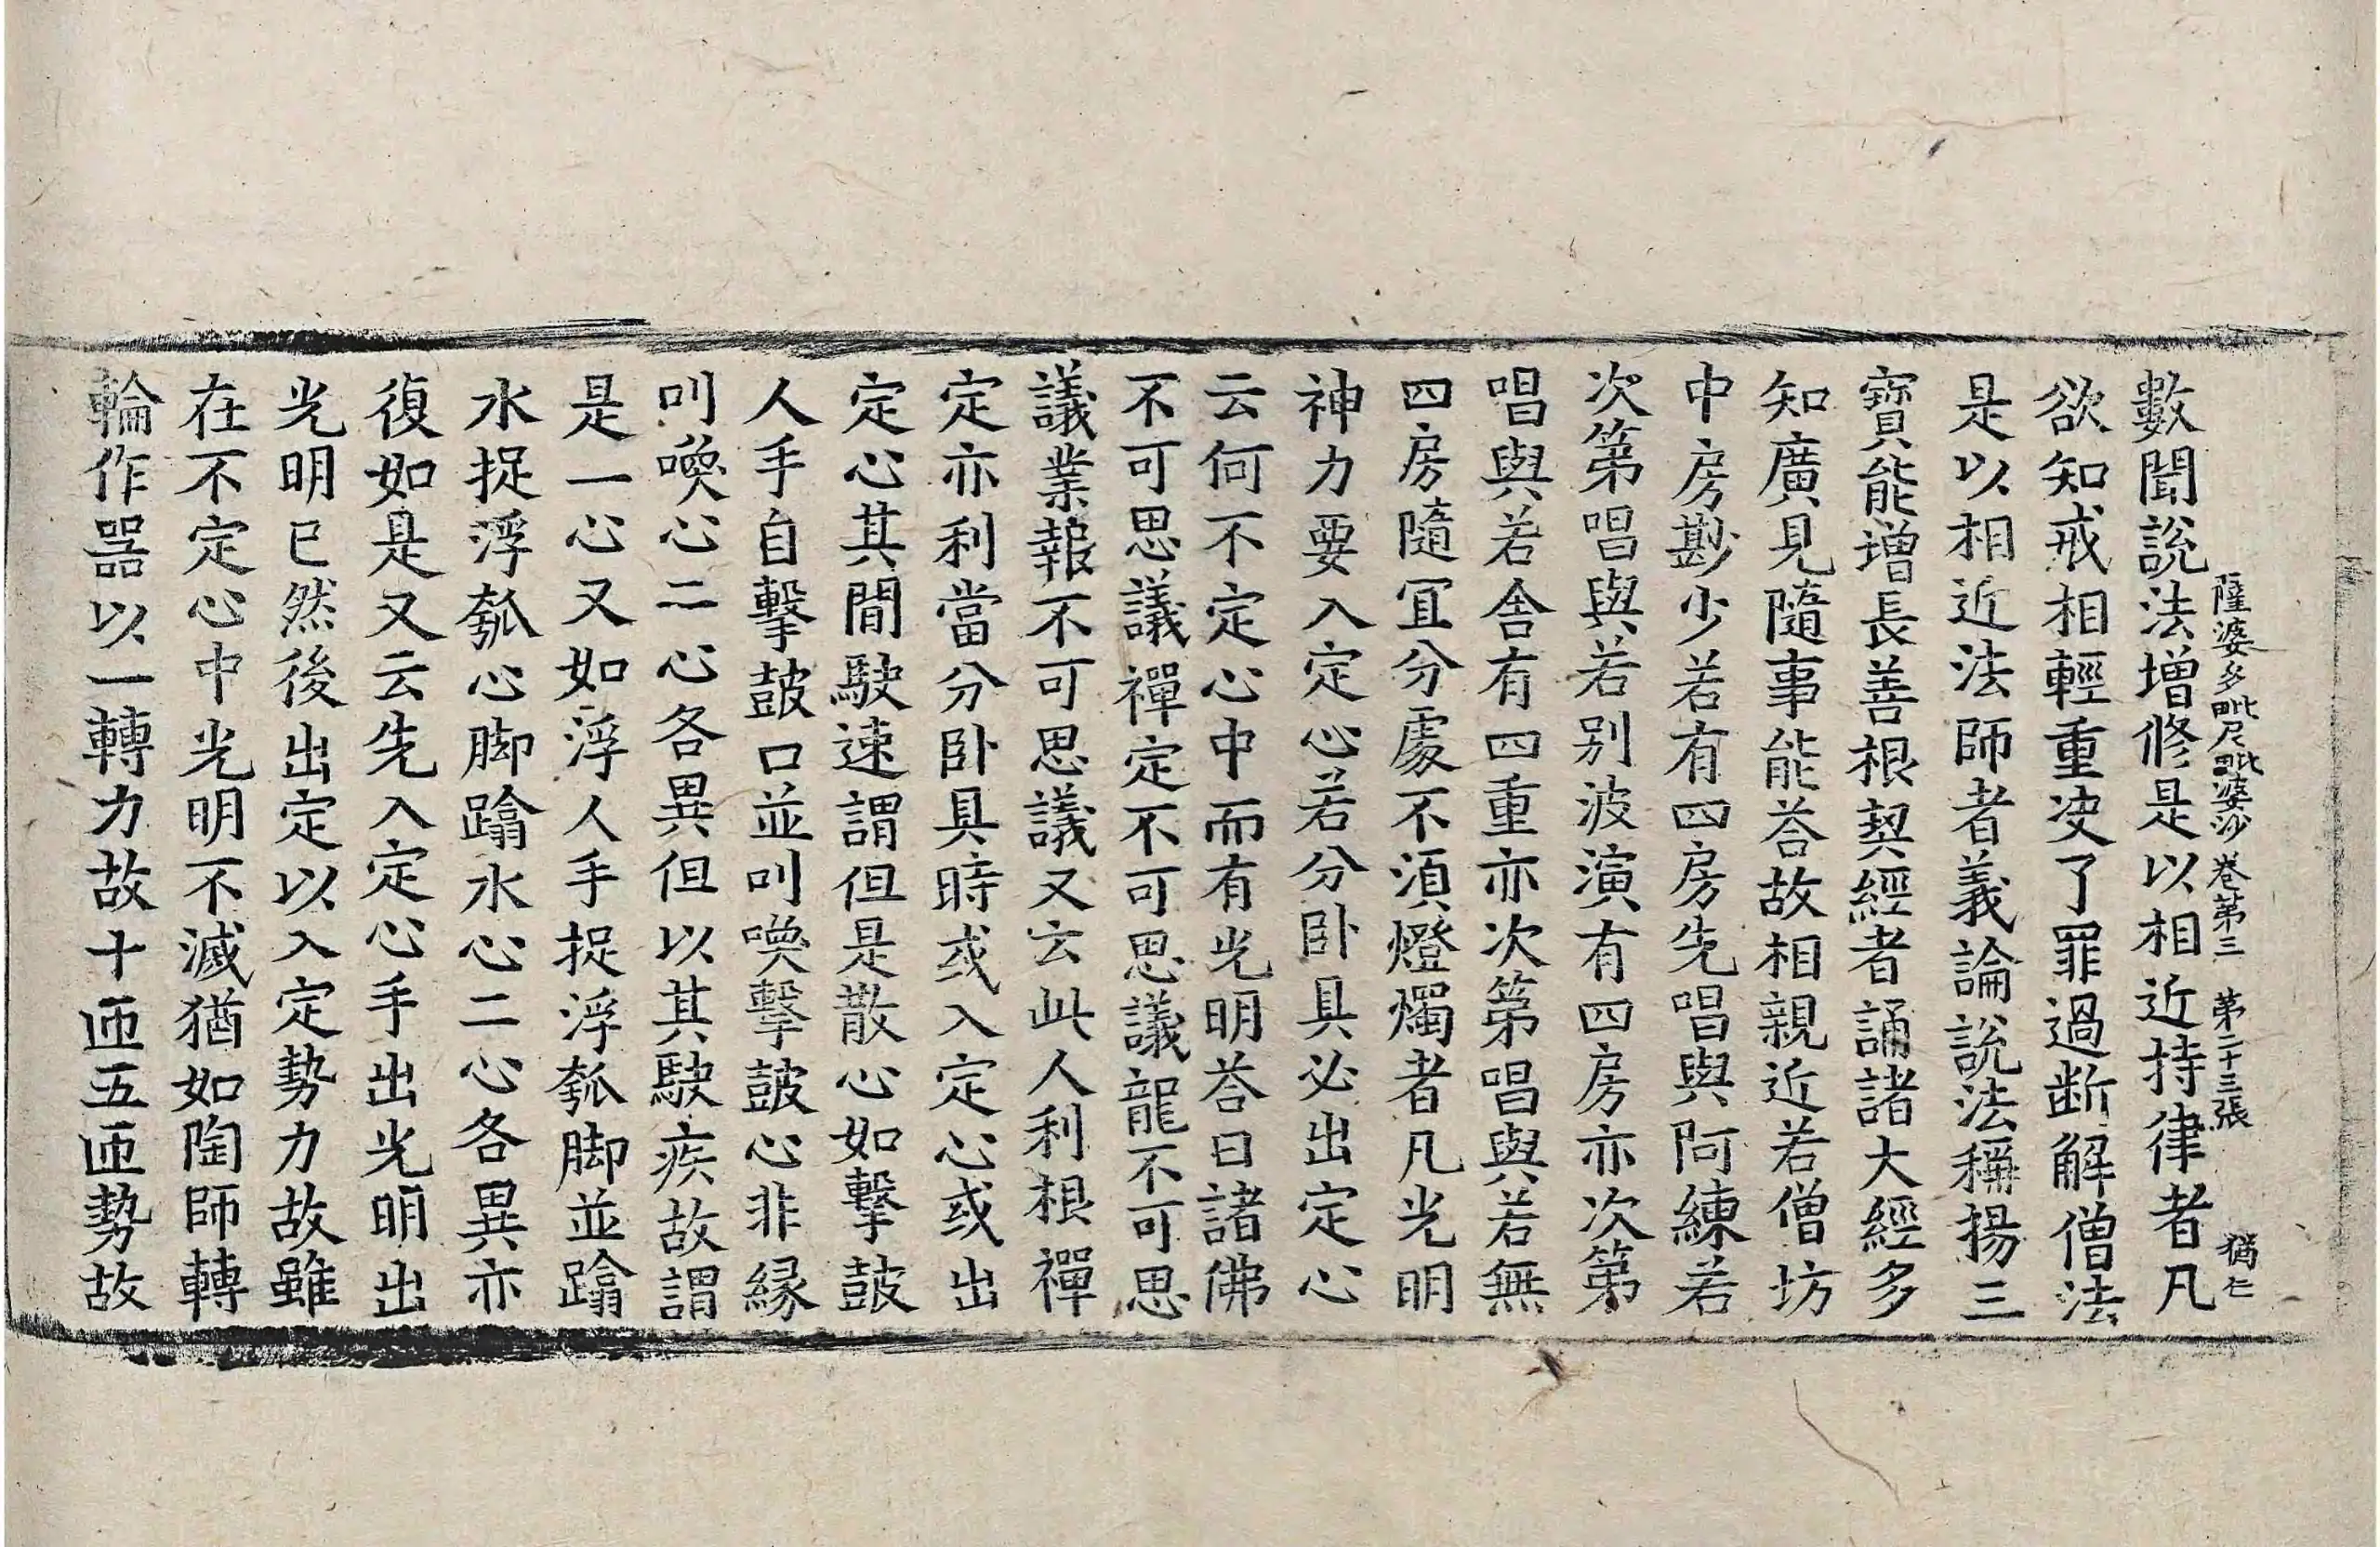 薩婆多毗尼毗婆沙卷第三 第二十三張 猶仁
數聞說法增修是以相近持律者凡
欲知戒相輕重決了罪過断解僧法
是以相近法師者義論說法稱揚三
寶能增長善根契經者誦諸大經多
知廣見隨事能荅故相親近若僧坊
中房尠少若有四房先唱與阿練若
次第唱與若別波演有四房亦次第
唱與若舍有四重亦次第唱與若無
四房隨冝分處不須燈燭者凡光明
神力要入定心若分卧具必出定心
云何不定心中而有光明荅曰諸佛
不可思議禪定不可思議龍不可思
議業報不可思議又云此人利根禪
定亦利當分卧具時或入定心或出
定心其間駛速謂但是散心如擊皷
人手自擊皷口並叫喚擊皷心非緣
叫喚心二心各異但以其駛疾故謂
是一心又如浮人手捉浮瓠脚並蹹
水捉浮瓠心脚蹹水心二心各異亦
復如是又云先入定心手出光明出
光明已然後出定以入定勢力故雖
在不定心中光明不滅猶如陶師轉
輪作器以一轉力故十匝五匝勢故